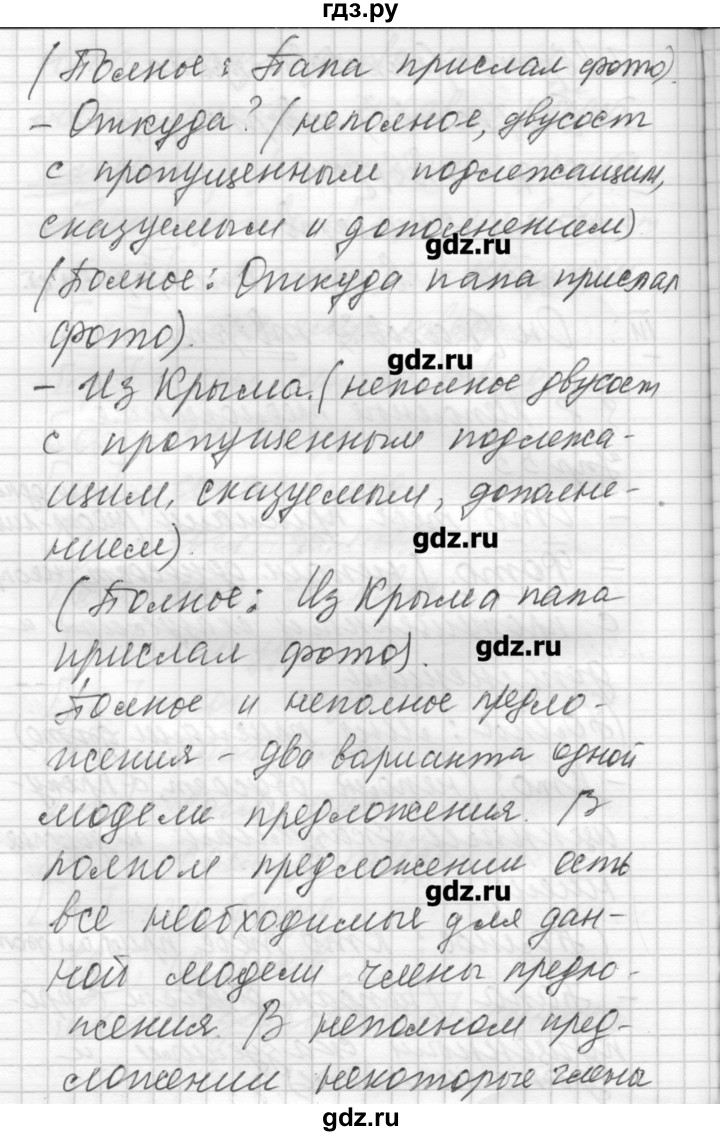 гдз.ру
(Полное: Папа прислал фото).
- Откуда? (неполное, двусост
с пропущенным подлежащим,
сказуемым и дополнением)
gdz.ru
(Полное: Откуда папа прислал
фото).
gdz.ru
- Из Крыма. (неполное двусост
с пропущенным подлежа-
щим, сказуемым, дополне-
gdz.ru
нием).
(Полное: Из Крыма папа
прислал фото).
gdz.ru
Полное и неполное предло-
жения - два варианта одной
модели предложения. В
полном предложении есть
gdz.ru
все необходимые для дан-
ной модели члены предло-
жения. В неполном пред-
ложении некоторые члены
gdz.ru